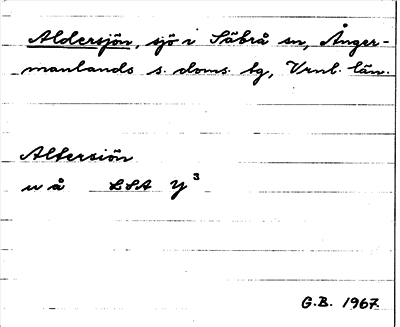 Aldersjön, sjö i Säbrå sn, Ånger-
manlands s. doms. tg, Vrnl. län.
Altersiön
u å LSA Y³
G.B. 1967.